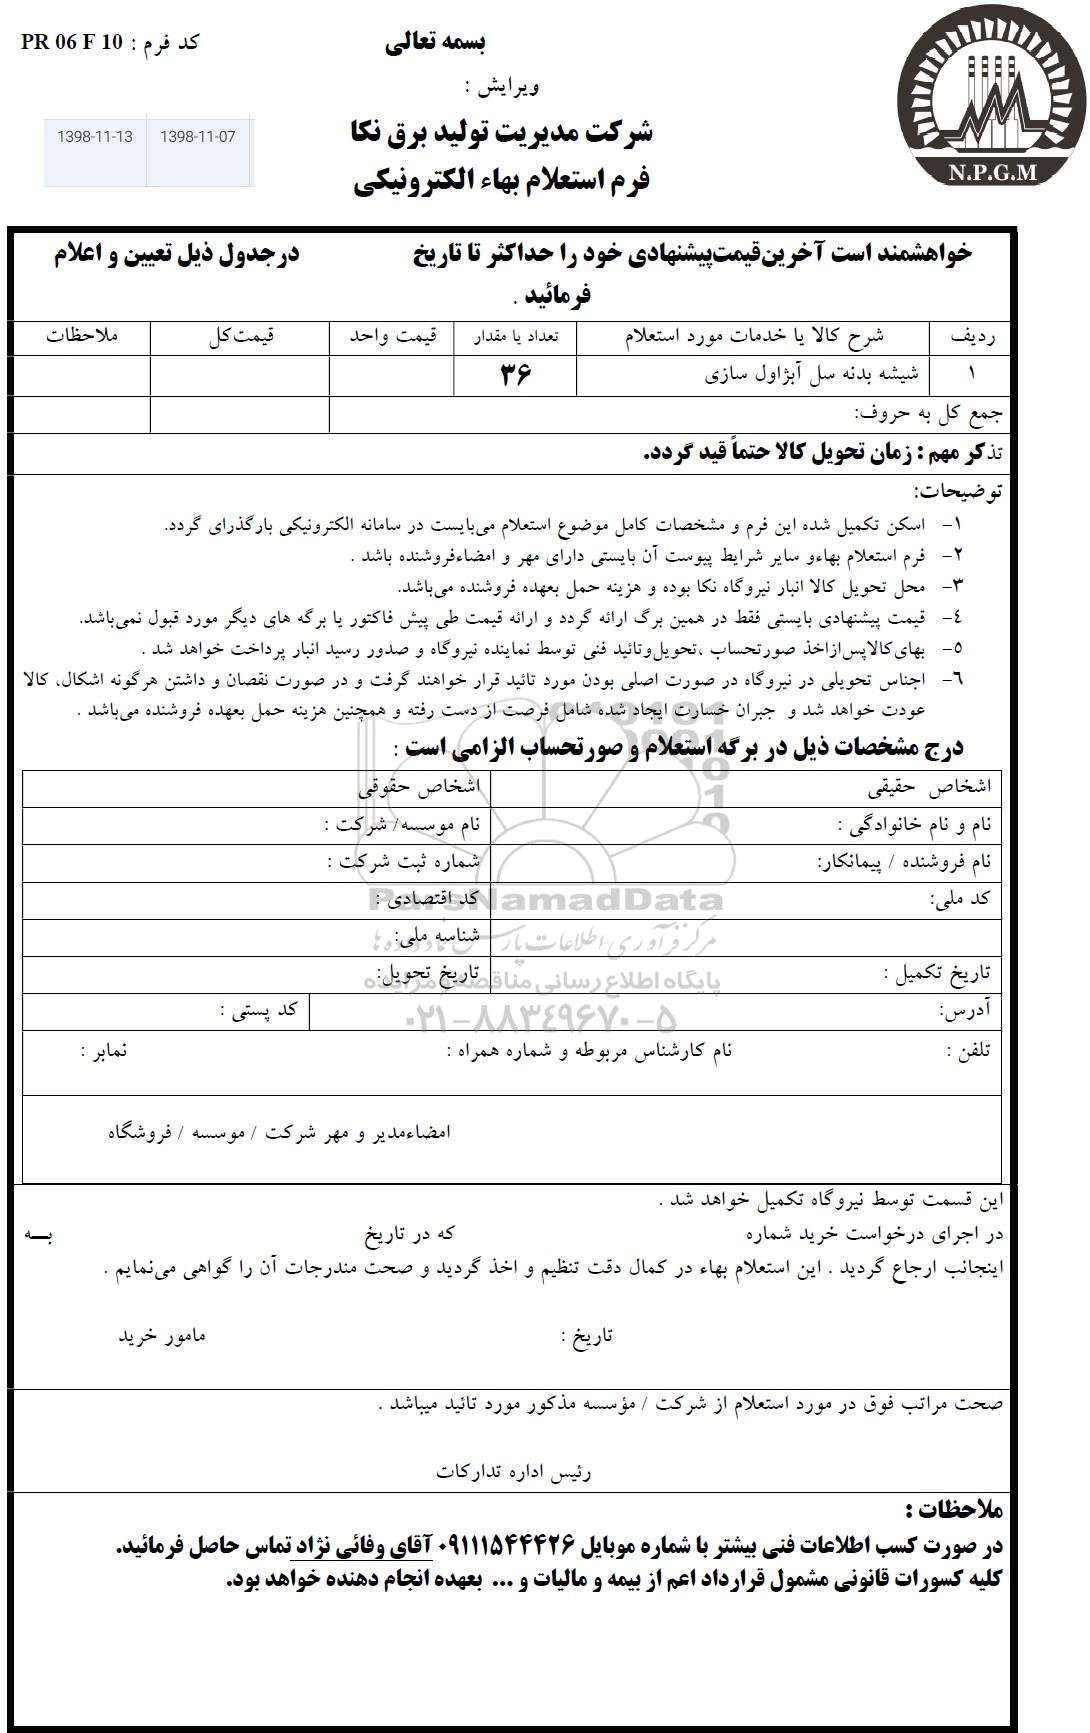 بسمه تعالی
کد فرم : PR 06 F 10
ویرایش :
1398-11-13 1398-11-07
شرکت مدیریت تولید برق نکا
فرم استعلام بهاء الکترونیکی
N.P.G.M
خواهشمند است آخرین‌قیمت‌پیشنهادی خود را حداکثر تا تاریخ درجدول ذیل تعیین و اعلام
فرمائید .
ردیف شرح کالا یا خدمات مورد استعلام تعداد یا مقدار قیمت واحد قیمت‌کل ملاحظات
۱ شیشه بدنه سل آبژاول سازی ۳۶
جمع کل به حروف:
تذکر مهم : زمان تحویل کالا حتماً قید گردد.
توضیحات:
۱- اسکن تکمیل شده این فرم و مشخصات کامل موضوع استعلام می‌بایست در سامانه الکترونیکی بارگذرای گردد.
۲- فرم استعلام بهاءو سایر شرایط پیوست آن بایستی دارای مهر و امضاءفروشنده باشد .
۳- محل تحویل کالا انبار نیروگاه نکا بوده و هزینه حمل بعهده فروشنده می‌باشد.
۴- قیمت پیشنهادی بایستی فقط در همین برگ ارائه گردد و ارائه قیمت طی پیش فاکتور یا برگه های دیگر مورد قبول نمی‌باشد.
۵- بهای‌کالاپس‌ازاخذ صورتحساب ،تحویل‌وتائید فنی توسط نماینده نیروگاه و صدور رسید انبار پرداخت خواهد شد .
۶- اجناس تحویلی در نیروگاه در صورت اصلی بودن مورد تائید قرار خواهند گرفت و در صورت نقصان و داشتن هرگونه اشکال، کالا
عودت خواهد شد و جبران خسارت ایجاد شده شامل فرصت از دست رفته و همچنین هزینه حمل بعهده فروشنده می‌باشد .
درج مشخصات ذیل در برگه استعلام و صورتحساب الزامی است :
اشخاص حقیقی اشخاص حقوقی
نام و نام خانوادگی : نام موسسه/ شرکت :
نام فروشنده / پیمانکار: شماره ثبت شرکت :
کد ملی: کد اقتصادی :
ParsNamadData
شناسه ملی:
مرکز فرآوری اطلاعات پارس نماد داده ها
تاریخ تکمیل : تاریخ تحویل:
پایگاه اطلاع رسانی مناقصه و مزایده
آدرس: کد پستی :
۰۲۱-۸۸۳۴۹۶۷۰-۵
تلفن : نام کارشناس مربوطه و شماره همراه : نمابر :
امضاءمدیر و مهر شرکت / موسسه / فروشگاه
این قسمت توسط نیروگاه تکمیل خواهد شد .
در اجرای درخواست خرید شماره که در تاریخ به
اینجانب ارجاع گردید . این استعلام بهاء در کمال دقت تنظیم و اخذ گردید و صحت مندرجات آن را گواهی می‌نمایم .
تاریخ : مامور خرید
صحت مراتب فوق در مورد استعلام از شرکت / مؤسسه مذکور مورد تائید میباشد .
رئیس اداره تدارکات
ملاحظات :
در صورت کسب اطلاعات فنی بیشتر با شماره موبایل ۰۹۱۱۱۵۴۴۴۲۶ آقای وفائی نژاد تماس حاصل فرمائید.
کلیه کسورات قانونی مشمول قرارداد اعم از بیمه و مالیات و ... بعهده انجام دهنده خواهد بود.